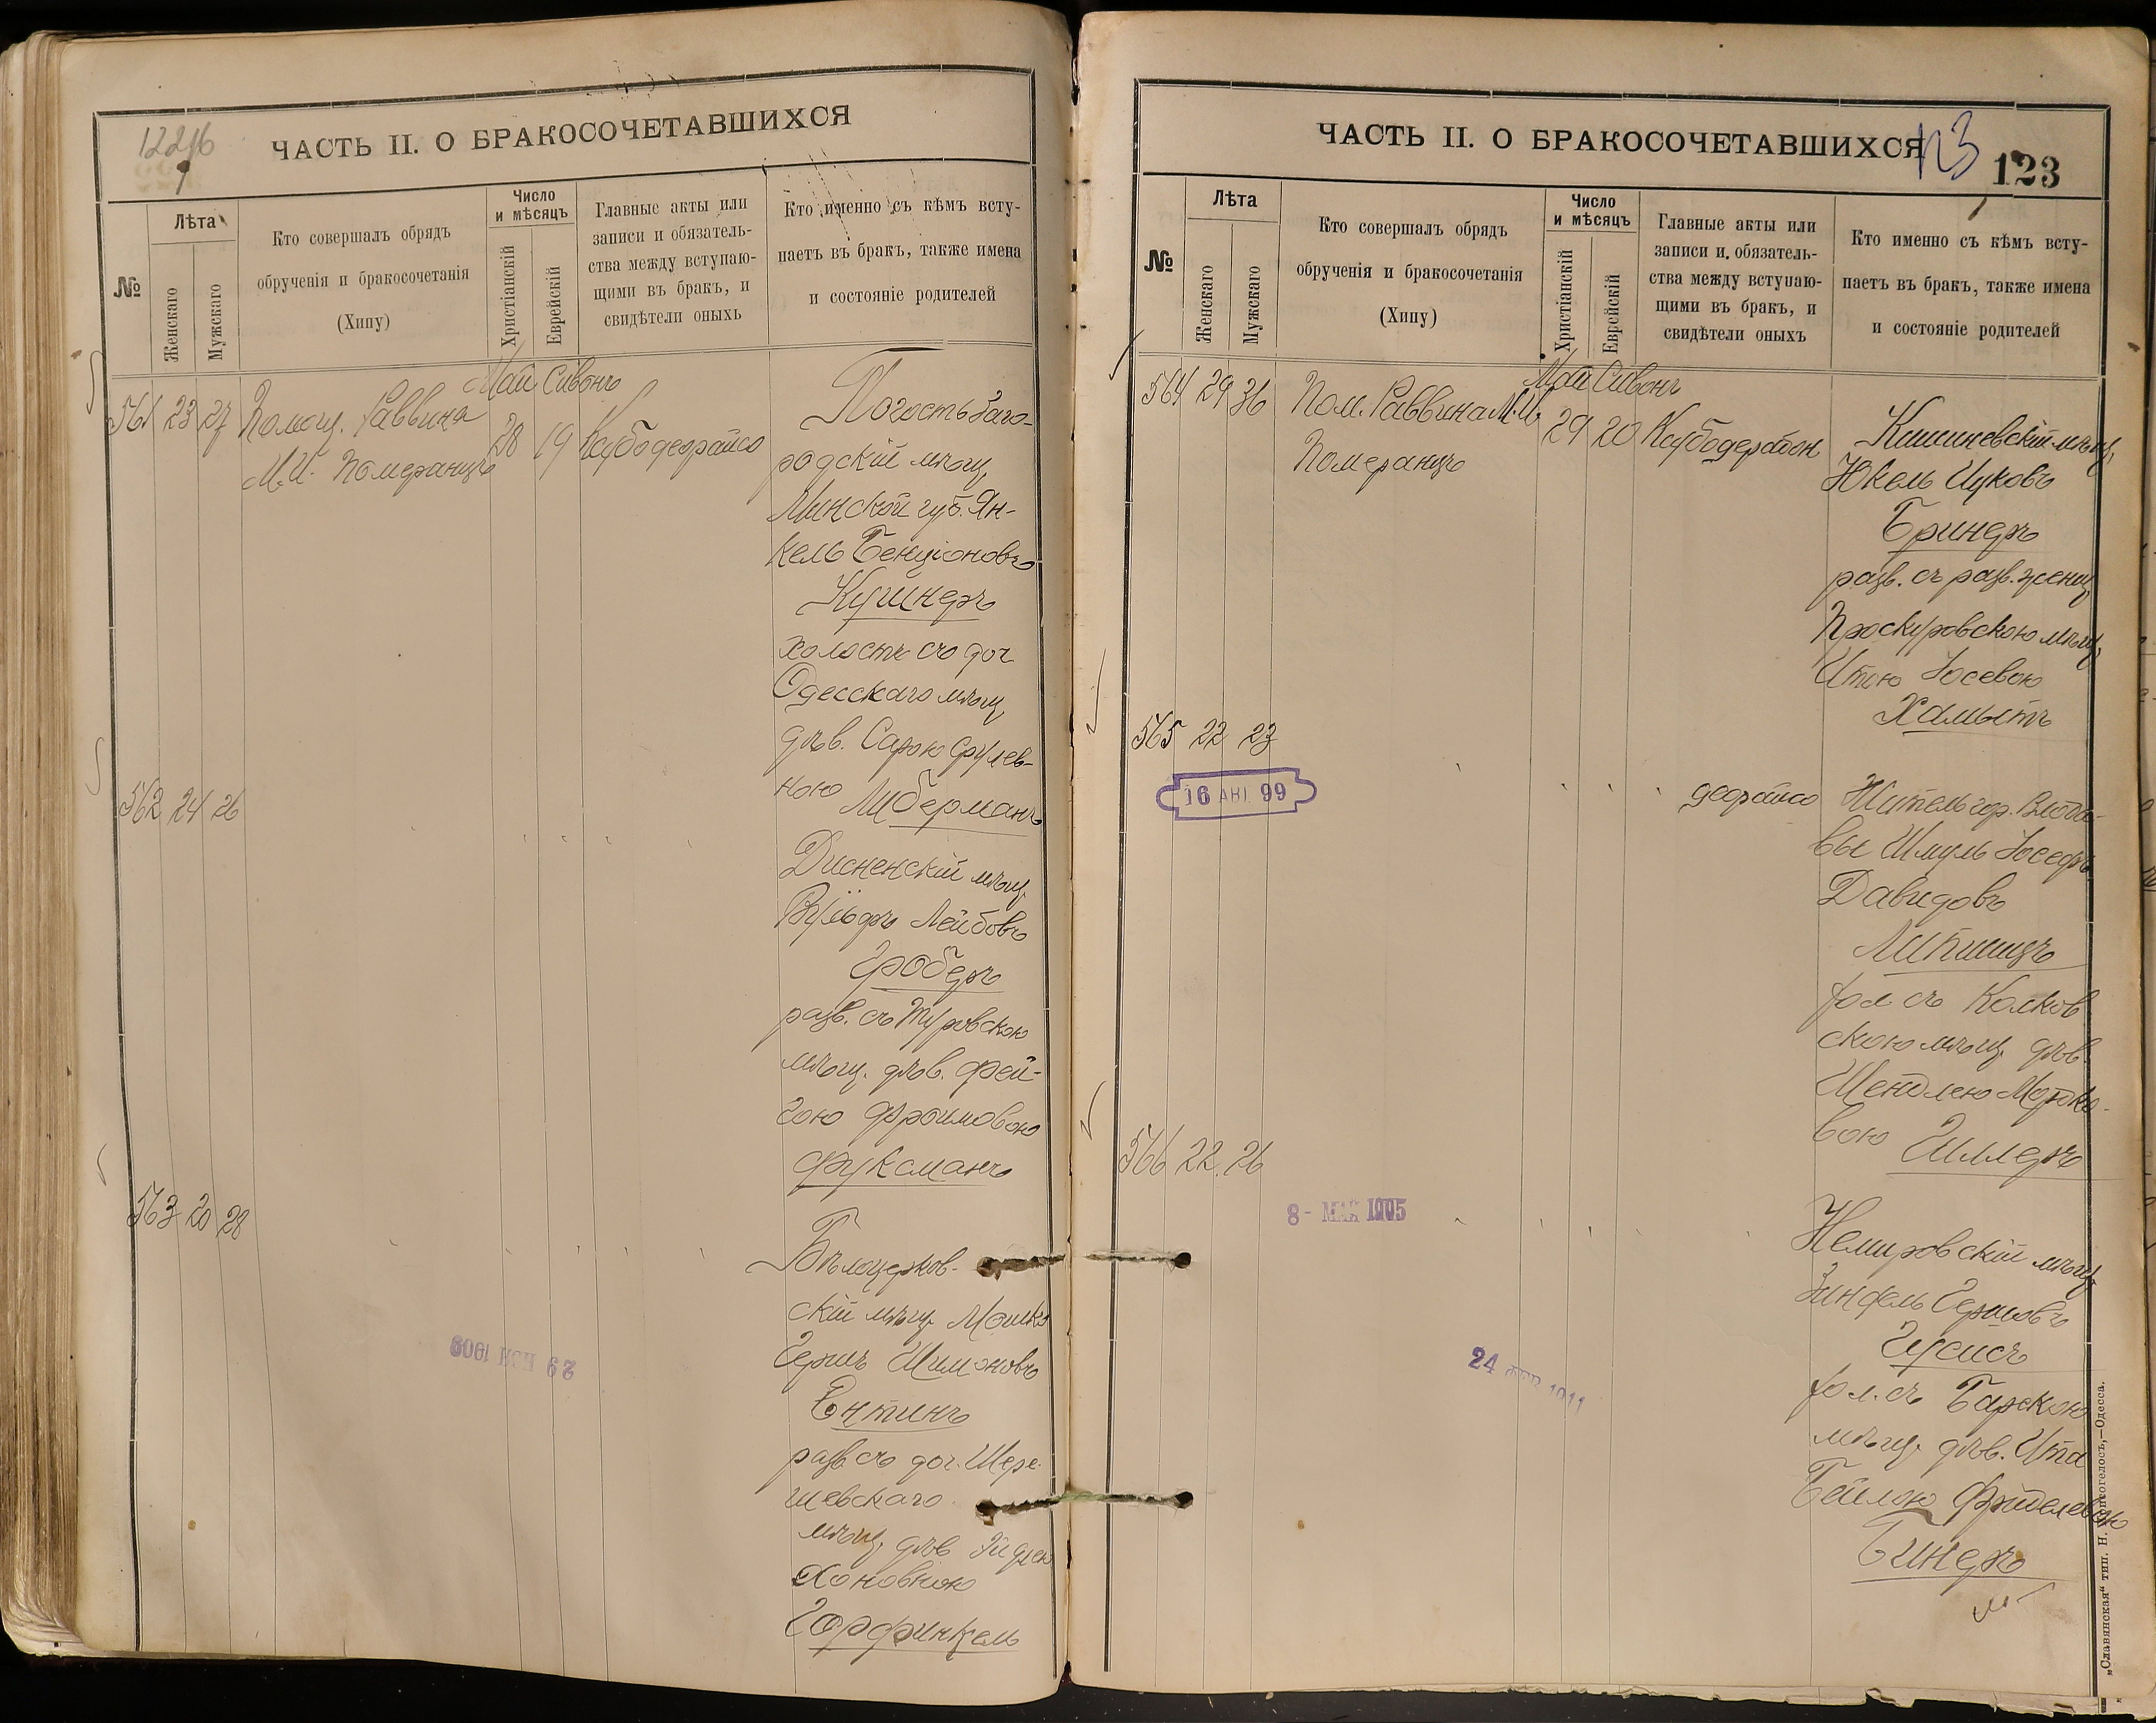 ЧАСТЬ II. О БРАКОСОЧЕТАВШИХСЯ
№
Лѣта
Женскаго
Мужскаго
Кто совершалъ обрядъ
обрученія и бракосочетанія
(Хипу)
Число
и мѣсяцъ
Христіанскій
Еврейскій
Главные акты или
записи и обязатель-
ства между вступаю-
щими въ бракъ, и
свидѣтели оныхъ
Кто именно съ кѣмъ всту-
паетъ въ бракъ, также имена
и состояніе родителей
Май Сивонъ
561 23 27 Помощ. Раввина
М.И. Померанцъ
28 19
Погостьзаго-
родскій мѣщ.
Минской губ. Ян-
кель Бенціоновъ
Кушнеръ
холость съ доч.
Одесскаго мѣщ.
дѣв. Сарою Срулев-
ною Либерманъ
562 24 26
Дисненскій мѣщ.
Вульфъ Лейбовъ
Гроберъ
разв. съ Туровскою
мѣщ. дѣв. Фей-
гою Фроимовою
Фуксманъ
563 20 28
Бѣлоцерков-
скій мѣщ. Мошко
Гершъ Шимоновъ
Ентинъ
разв. съ доч. Шере-
шевскаго
мѣщ. дѣв.
Хоновною
Горфинкель
ЧАСТЬ II. О БРАКОСОЧЕТАВШИХСЯ
123
123
№
Лѣта
Женскаго
Мужскаго
Кто совершалъ обрядъ
обрученія и бракосочетанія
(Хипу)
Число
и мѣсяцъ
Христіанскій
Еврейскій
Главные акты или
записи и обязатель-
ства между вступаю-
щими въ бракъ, и
свидѣтели оныхъ
Кто именно съ кѣмъ всту-
паетъ въ бракъ, также имена
и состояніе родителей
Май Сивонъ
564 29 36 Пом. Раввина М.И.
Померанцъ
29 20
Кишиневскій мѣщ.
Юкель Ицковъ
Бринеръ
разв. съ разв. женщ.
Проскуровскою мѣщ.
Итою Іосевою
Хамытъ
565 22 23
16 АВГ. 99
Житель гор. Влода-
вы Шмуль Іосефъ
Давидовъ
Липшицъ
хол. съ Колков
скою мѣщ. дѣв.
Шендлею Мордко-
вою Гиллеръ
566 22 26
8 - МАЯ 1905
Немировскій мѣщ.
Зинфель Гершовъ
Гусисъ
хол. съ Барскою
мѣщ. дѣв. Ита
Бейлою Фриделевою
Бинеръ
24 ФЕВ 1911
„Славянская“ тип. Н. Хрисогелосъ,—Одесса.